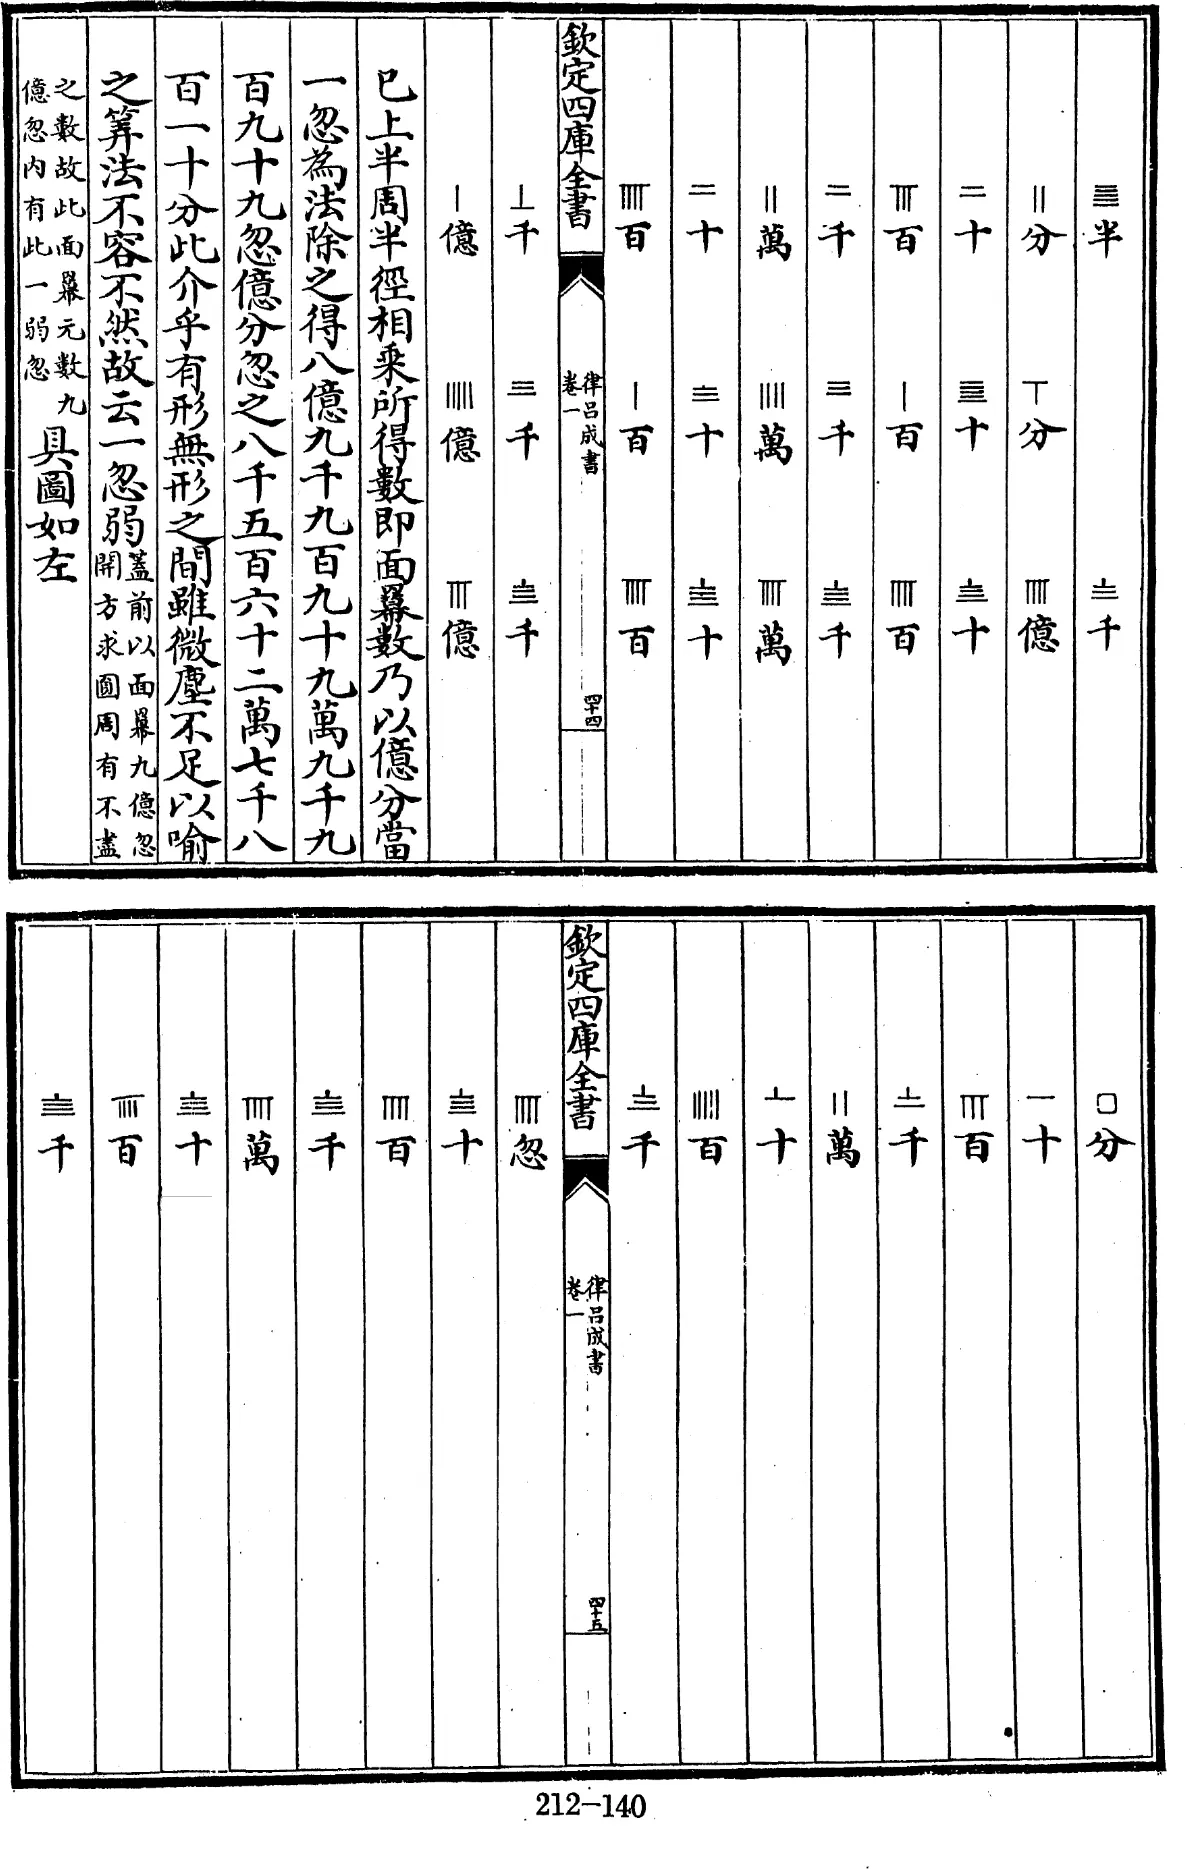 𝍤半　𝍧千
𝍪分　𝍮分　𝍱億
𝍡十　𝍤十　𝍨十
𝍰百　𝍩百　𝍱百
𝍡千　𝍢千　𝍨千
𝍪萬　𝍬萬　𝍱萬
𝍡十　𝍧十　𝍨十
𝍱百　𝍩百　𝍱百
欽定四庫全書　律呂成書卷一　四十四
𝍥千　𝍢千　𝍨千
𝍩億　𝍭億　𝍰億
已上半周半徑相乗所得數即面羃數乃以億分當
一忽為法除之得八億九千九百九十九萬九千九
百九十九忽億分忽之八千五百六十二萬七千八
百一十分此介乎有形無形之間雖微塵不足以喻
之筭法不容不然故云一忽弱蓋前以面羃九億忽開方求圓周有不盡
之數故此面羃元數九億忽内有此一弱忽具圖如左
〇分
𝍠十
𝍰百
𝍦千
𝍪萬
𝍥十
𝍭百
𝍧千
欽定四庫全書　律呂成書卷一　四十五
𝍱忽
𝍨十
𝍱百
𝍨千
𝍱萬
𝍨十
𝍱百
𝍨千
212-140